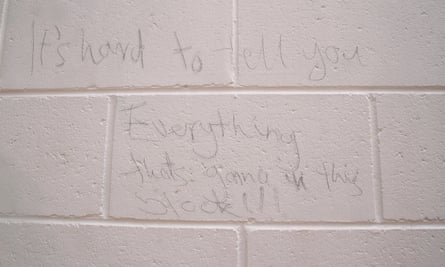 It's hard to tell you
Everything
thats gonna in this
block!!!